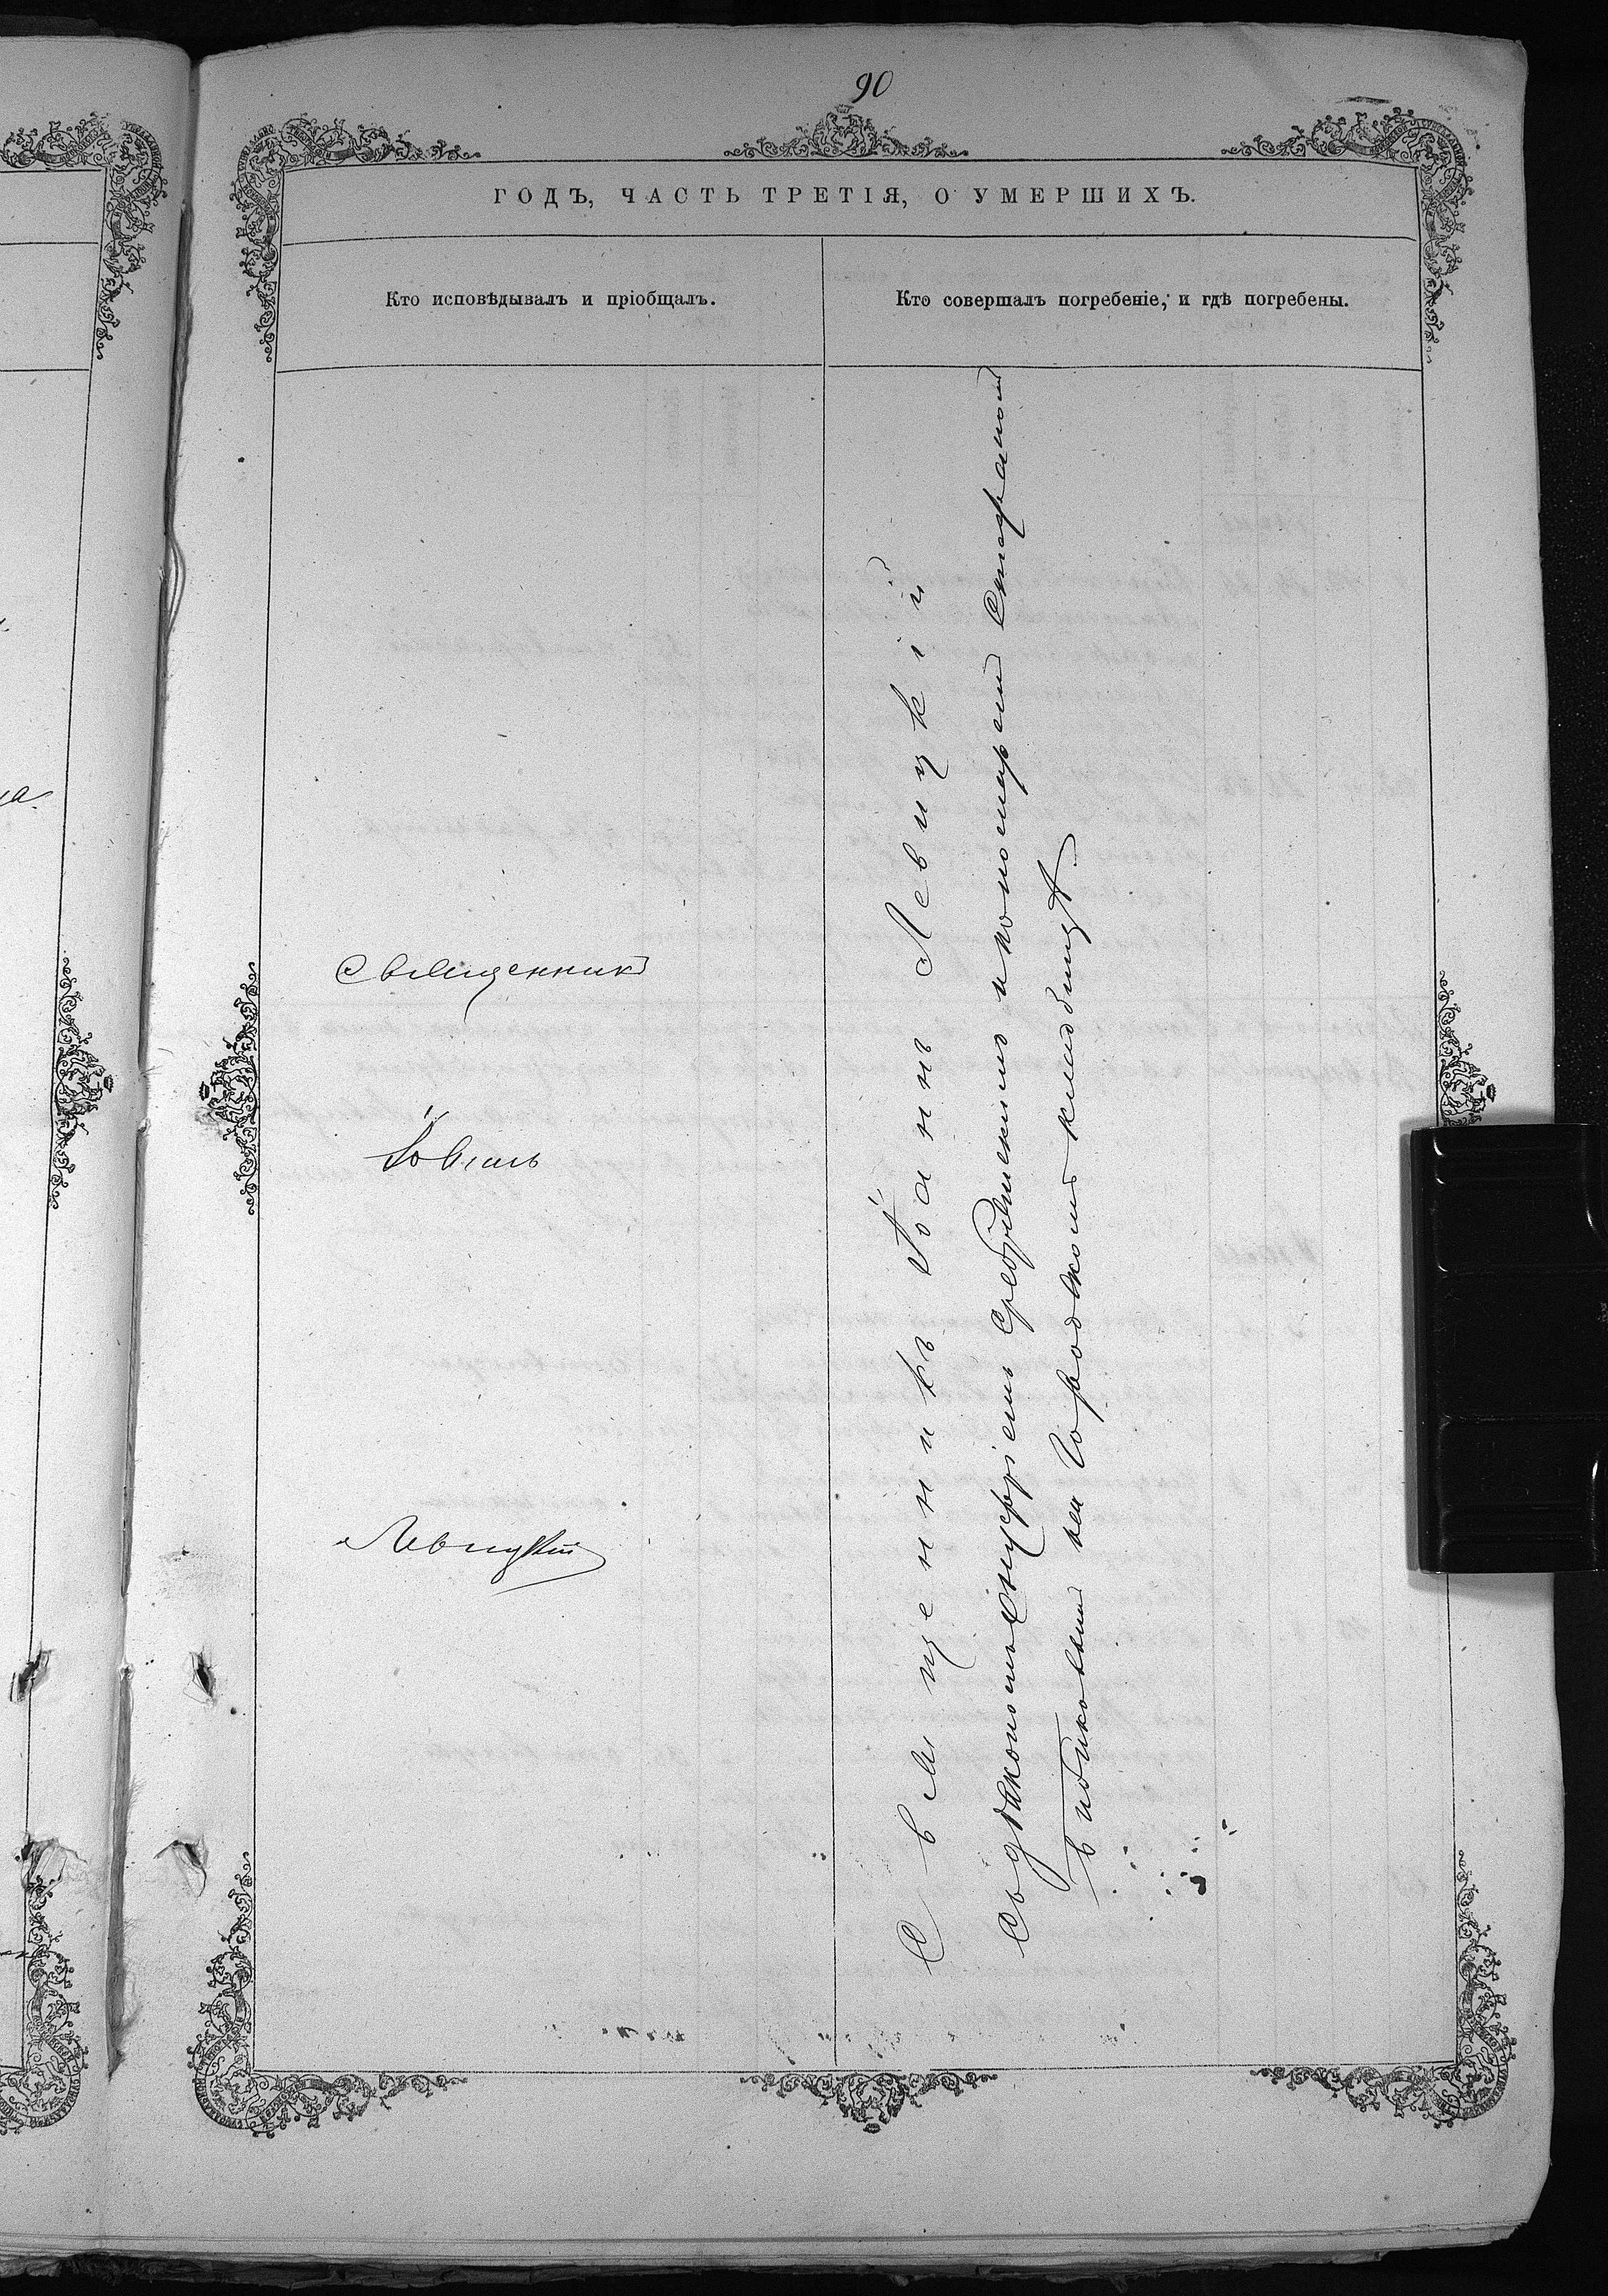 90
ГОДЪ, ЧАСТЬ ТРЕТІЯ, О УМЕРШИХЪ.
Кто исповѣдывалъ и пріобщалъ.
Кто совершалъ погребеніе, и гдѣ погребены.
Священникъ
Іоаннъ
Левицкій
Священникъ Іоаннъ Левицкій
Съ дьякономъ Онуфріемъ и пономаремъ
на Городскомъ кладбищѣ